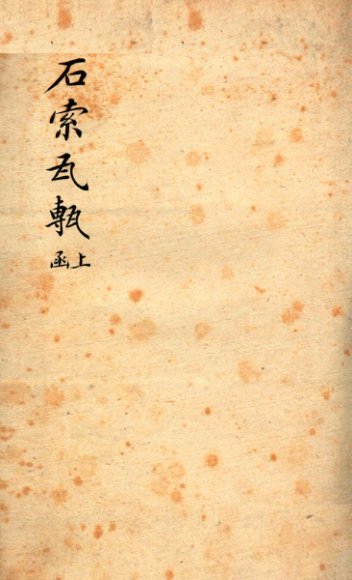 石索瓦甎
上函